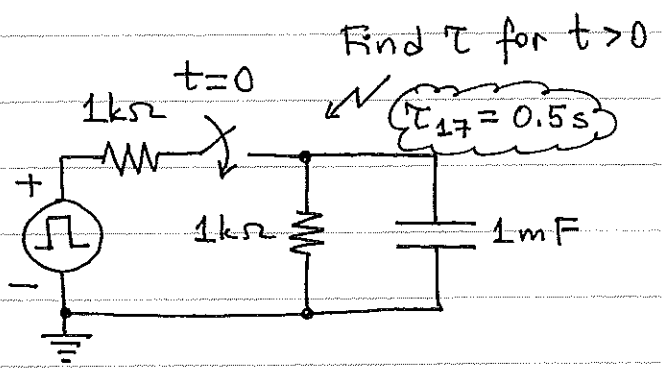 Find τ for t > 0
t=0
1kΩ
τ17 = 0.5s
+
1kΩ
1mF
−